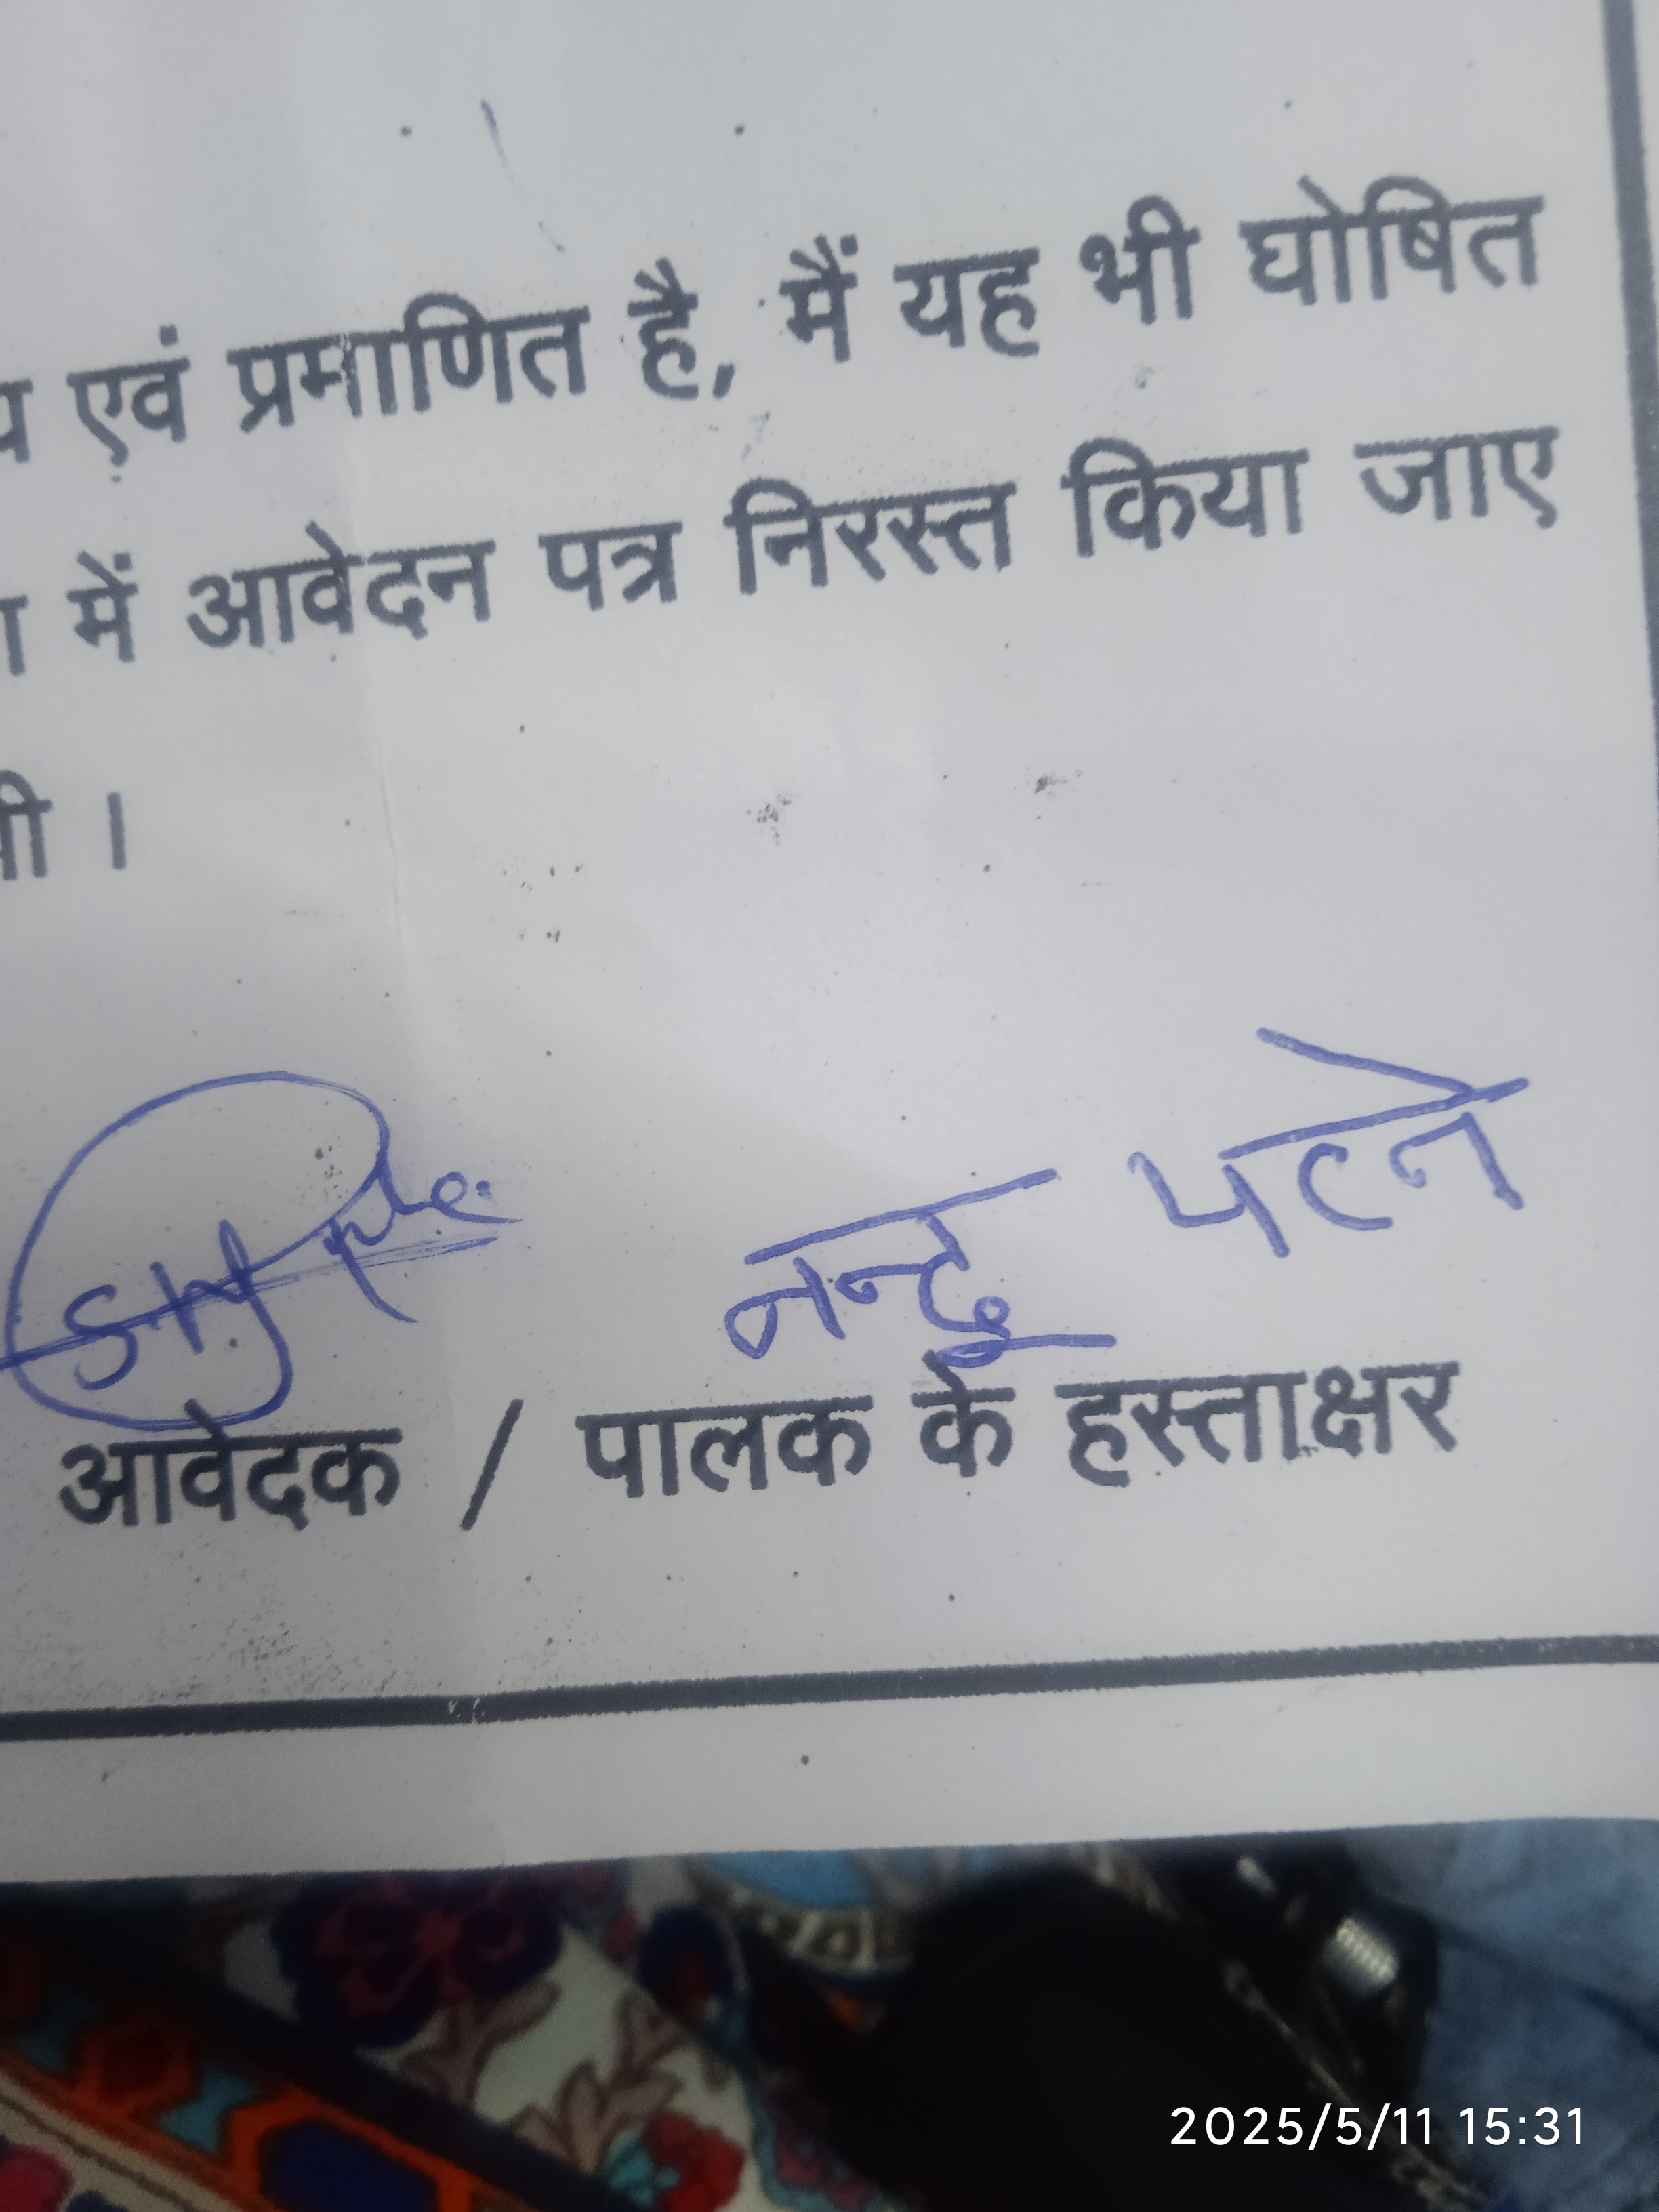 एवं प्रमाणित है, मैं यह भी घोषित
में आवेदन पत्र निरस्त किया जाए
।
नन्दु पटने
आवेदक / पालक के हस्ताक्षर
2025/5/11 15:31